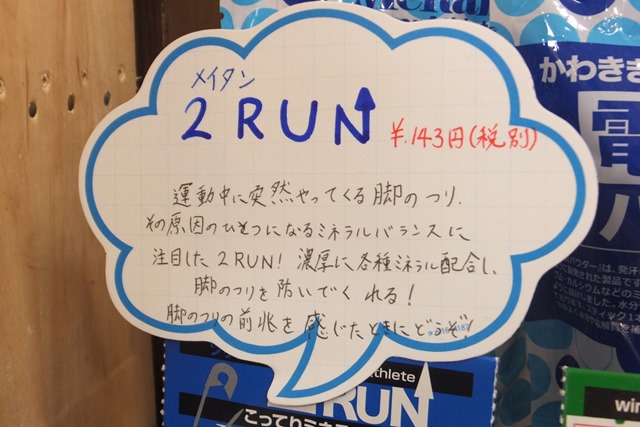 メイタン
2RUN
¥.143円(税別)
運動中に突然やってくる脚のつり.
その原因のひとつになるミネラルバランスに
注目した2RUN! 濃厚に各種ミネラル配合し、
脚のつりを防いでくれる!
脚のつりの前兆を感じたときにどうぞ!
かわきき
電
パ
パウダー』は、発汗
athlete
RUN
こってりミネ
win